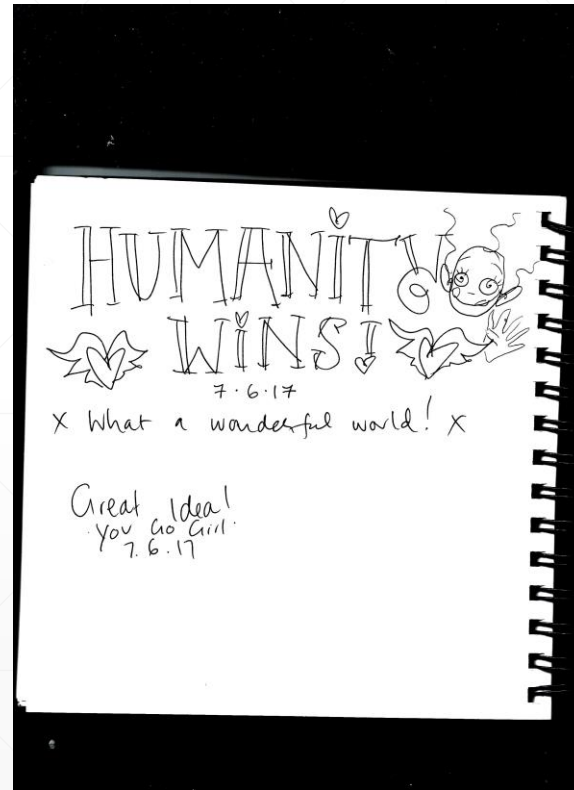 HUMANiTY
WiNS!
7.6.17
X What a wonderful world! X
Great Idea!
You Go Girl.
7.6.17